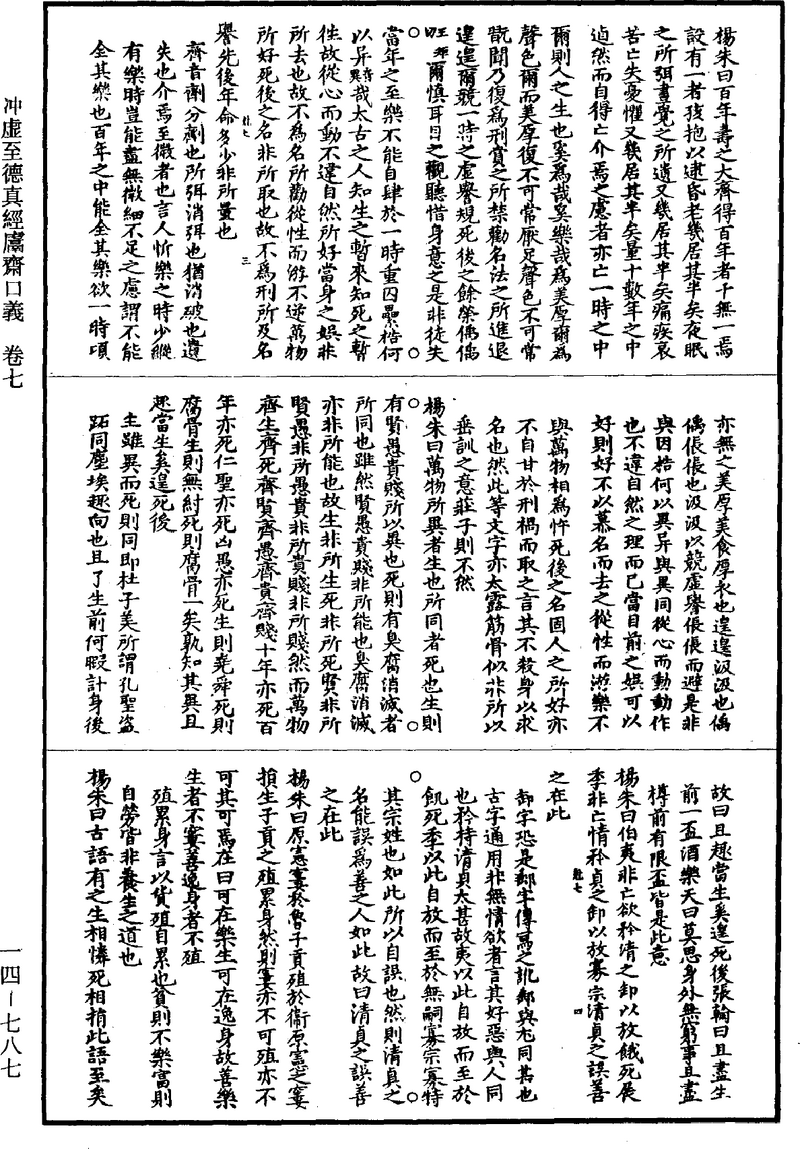 楊朱曰百年壽之大齊得百年者千無一焉
設有一者孩抱以逮昏老幾居其半矣夜眠
之所弭晝覺之所遺又幾居其半矣痛疾哀
苦亡失憂懼又幾居其半矣量十數年之中
逌然而自得亡介焉之慮者亦亡一時之中
爾則人之生也奚為哉奚樂哉為美厚爾為
聲色爾而美厚復不可常厭足聲色不可常
翫聞乃復為刑賞之所禁勸名法之所進退
遑遑爾競一時之虛譽規死後之餘榮偊偊
爾慎耳目之觀聽惜身意之是非徒失
當年之至樂不能自肆於一時重囚纍梏何
以异哉太古之人知生之暫來知死之暫
往故從心而動不違自然所好當身之娛非
所去也故不為名所勸從性而游不逆萬物
所好死後之名非所取也故不為刑所及名
譽先後年命多少非所量也
齊音劑分劑也所弭消弭也猶消破也遺
失也介焉至微者也言人忻樂之時少縱
有樂時豈能盡無微細不足之慮謂不能
全其樂也百年之中能全其樂欲一時頃
亦無之美厚美食厚衣也遑遑汲汲也偊
偊倀倀也汲汲以競虛譽倀倀而避是非
與囚梏何以異异與異同從心而動動作
也不違自然之理而已當目前之娛可以
好則好不以慕名而去之從性而游樂不
與萬物相為忤死後之名固人之所好亦
不自甘於刑禍而取之言其不殺身以求
名也然此等文字亦太露筋骨似非所以
垂訓之意莊子則不然
楊朱曰萬物所異者生也所同者死也生則
有賢愚貴賤所以異也死則有臭腐消滅者
所同也雖然賢愚貴賤非所能也臭腐消滅
亦非所能也故生非所生死非所死賢非所
賢愚非所愚貴非所貴賤非所賤然而萬物
齊生齊死齊賢齊愚齊貴齊賤十年亦死百
年亦死仁聖亦死凶愚亦死生則堯舜死則
腐骨生則無紂死則腐骨一矣孰知其異且
趣當生奚遑死後
生雖異而死則同即杜子美所謂孔聖盜
跖同塵埃趣向也且了生前何暇計身後
故曰且趣當生奚遑死後張翰曰且盡生
前一盃酒樂天曰莫思身外無窮事且盡
樽前有限盃皆是此意
楊朱曰伯夷非亡欲矜清之卸以放餓死展
季非亡情矜貞之卸以放寡宗清貞之誤善
之在此
卸字恐是郵字傳寫之訛郵與尤同甚也
古字通用非無情欲者言其好惡與人同
也矜持清貞太甚故夷以此自放而至於
飢死季以此自放而至於無嗣寡宗寡特
其宗姓也如此所以自誤也然則清貞之
名能誤為善之人如此故曰清貞之誤善
之在此
楊朱曰原憲窶於魯子貢殖於衛原憲之窶
損生子貢之殖累身然則窶亦不可殖亦不
可其可焉在曰可在樂生可在逸身故善樂
生者不窶善逸身者不殖
殖累身言以貨殖自累也貧則不樂富則
自勞皆非養生之道也
楊朱曰古語有之生相憐死相捐此語至矣
冲虛至德真經鬳齋口義　卷七
一四—七八七